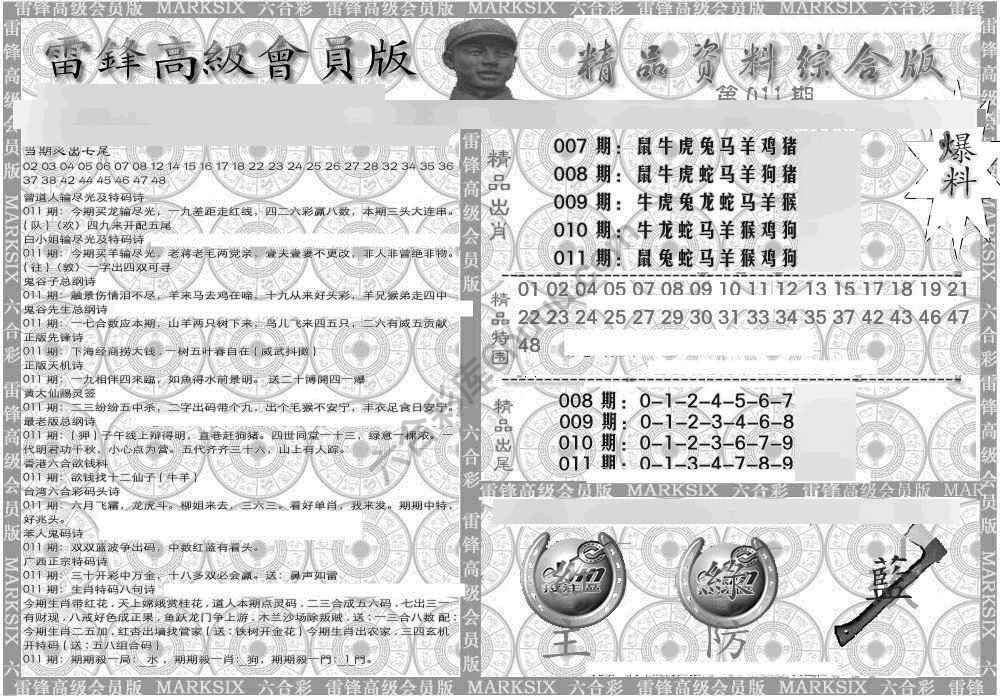 雷锋高级会员版 MARKSIX 六合彩 雷锋高级会员版 MARKSIX 六合彩 雷锋高级会员版 MARKSIX 六合彩 雷锋
雷鋒高級會員版
精品资料综合版
第 011 期
爆料
当期灵出七尾
02 03 04 05 06 07 08 12 14 15 16 17 18 22 23 24 25 26 27 28 32 34 35 36
37 38 42 44 45 46 47 48
曾道人输尽光及特码诗
011 期：今期买龙输尽光，一九差距走红线，四二六彩赢八数，本期三头大连串。
{队}（欢）四九来开配五尾
白小姐输尽光及特码诗
011 期：今期买羊输尽光，老蒋老毛两党亲，壹夫壹妻不更改，非人非曾绝非物。
{往}（敦）一字出四双可寻
鬼谷子总纲诗
011 期：融景伤情泪不尽，羊来马去鸡在啼，十九从来好头彩，羊兄猴弟走四中
鬼谷先生总纲诗
011 期：一七合数应本期，山羊两只树下来，鸟儿飞来四五只，二六有威五贡献
正版先锋诗
011 期：下海经商捞大钱，一树五叶春自在{威武抖擞}
正版天机诗
011 期：一九相伴四来臨，如魚得水前景明。送二十博開四一爆
黄大仙赐灵签
011 期：二三纷纷五中杀，二字出码带个九，出个毛猴不安宁，丰衣足食日安宁。
最老版总纲诗
011 期：{狎}子午线上辩得明，直巷赶狗猪。四世同堂一十三，绿意一棵浓。一
代明君功千秋，小心点为营。五代齐齐三十六，山上有人踪。
香港六合欲钱料
011 期：欲钱找十二仙子{牛羊}
台湾六合彩码头诗
011 期：六月飞霜，龙虎斗。柳姐来去，三六三。看好单肖，我来发。期期中特，
好兆头。
笨人鬼码诗
011 期：双双蓝波争出码，中数红蓝有看头。
广西正宗特码诗
011 期：三十开彩中万金，十八多双必会赢。送：鼻声如雷
011 期：生肖特码八句诗
今期生肖带红花，天上嫦娥赏桂花，道人本期点灵码，二三合成五六码，七出三一
有财现，八戒好色成正果，鱼跃龙门争上游，木兰沙场除叛贼，送：一三合八数 配：
今期生肖二五加，红杏出墙找管家{送：铁树开金花}今期生肖出农家，三四玄机
开特码{送：五八组合码}
011 期：期期殺一局：水，期期殺一肖：狗，期期殺一門：1 門。
精品出肖
007 期：鼠牛虎兔马羊鸡猪
008 期：鼠牛虎蛇马羊狗猪
009 期：牛虎兔龙蛇马羊猴
010 期：牛龙蛇马羊猴鸡狗
011 期：鼠兔蛇马羊猴鸡狗
精品特围
01 02 04 05 07 08 09 10 11 12 13 15 17 18 19 21
22 23 24 25 27 29 30 31 33 34 35 37 42 43 46 47
48
精品出尾
008 期：0-1-2-4-5-6-7
009 期：0-1-2-3-4-6-8
010 期：0-1-2-3-6-7-9
011 期：0-1-3-4-7-8-9
雷锋高级会员版 MARKSIX 六合彩 雷锋高级会员版 MAR
綠
藍
主
防
雷锋高级会员版 MARKSIX 六合彩 雷锋高级会员版 MARKSIX 六合彩 雷锋高级会员版 MARKSIX 六合彩 雷锋